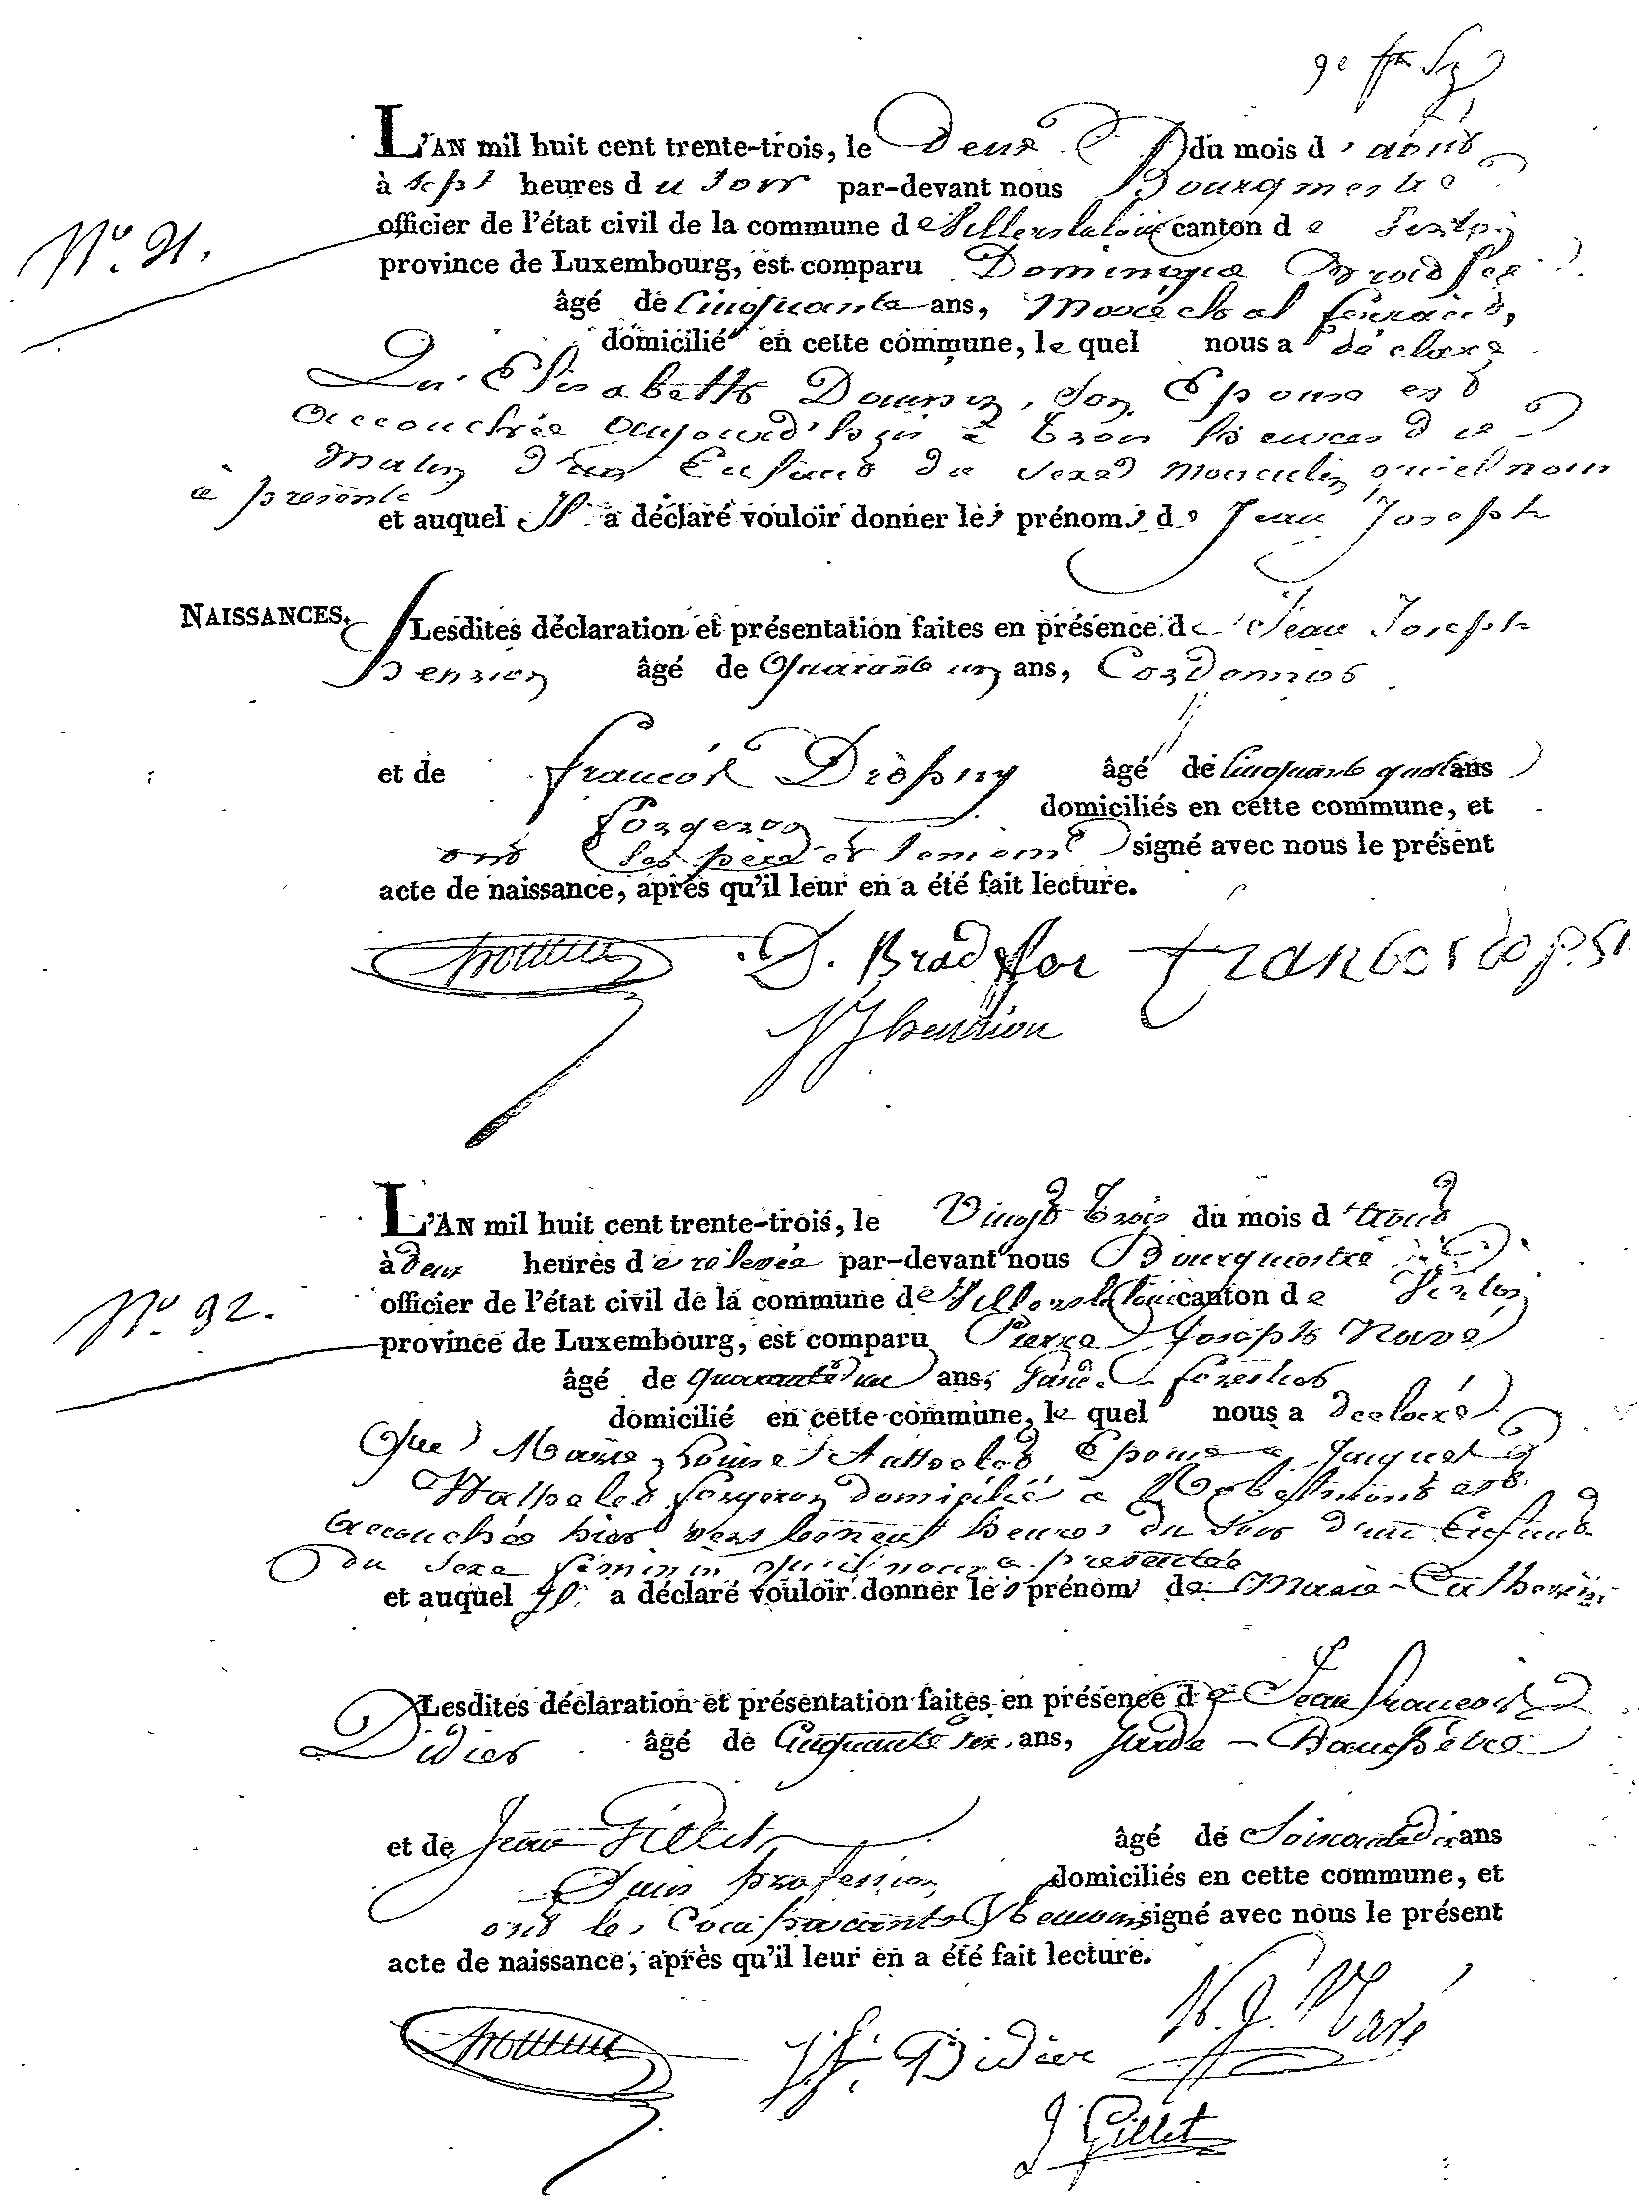 9e
L'AN mil huit cent trente-trois, le Deux du mois d'août
à sept heures du soir par-devant nous Bourgmestre
officier de l'état civil de la commune de Villerslaloue canton de Virton
N° 91.
province de Luxembourg, est comparu Dominique
âgé de Cinquante ans, Marechal ferrand,
domicilié en cette commune, le quel nous a déclaré
Qu'Elisabeth son Epouse est
accouchée aujourd'huis à trois heures du
matin d'un Enfand du sexe masculin qu'il nous
a présenté
et auquel Il a déclaré vouloir donner les prénoms de Jean Joseph
NAISSANCES.
Lesdites déclaration et présentation faites en présence de Jean Joseph
henrion âgé de Quarante un ans, Cordonnier
et de francois âgé de Cinquante quatre ans
forgeron domiciliés en cette commune, et
ont les père et temoins signé avec nous le présent
acte de naissance, après qu'il leur en a été fait lecture.
D.
JJ henrion
L'AN mil huit cent trente-trois, le Vingt trois du mois d'aoud
à deux heures de relevée par-devant nous Bourgmestre
officier de l'état civil de la commune de Villerslaloue canton de Virton
N° 92.
province de Luxembourg, est comparu Pierre Joseph Navé
âgé de quarante un ans, Garde forestier
domicilié en cette commune, le quel nous a declaré
Que Marie Louise Epouse a Jacques
forgeron domicilié a Robelmont est
accouchée hier vers heures du soir d'un Enfand
du sexe féminin qu'il nous a présentée
et auquel Il a déclaré vouloir donner les prénom de Marie-Catherine
Lesdites déclaration et présentation faites en présence de Jean francois
Didier âgé de Cinquante six ans, Garde-Champêtre
et de Jean Gillet âgé de Soixante dix ans
Sans profession domiciliés en cette commune, et
ont les Comparants & temoins signé avec nous le présent
acte de naissance, après qu'il leur en a été fait lecture.
J.f. Didier
Navé
J Gillet